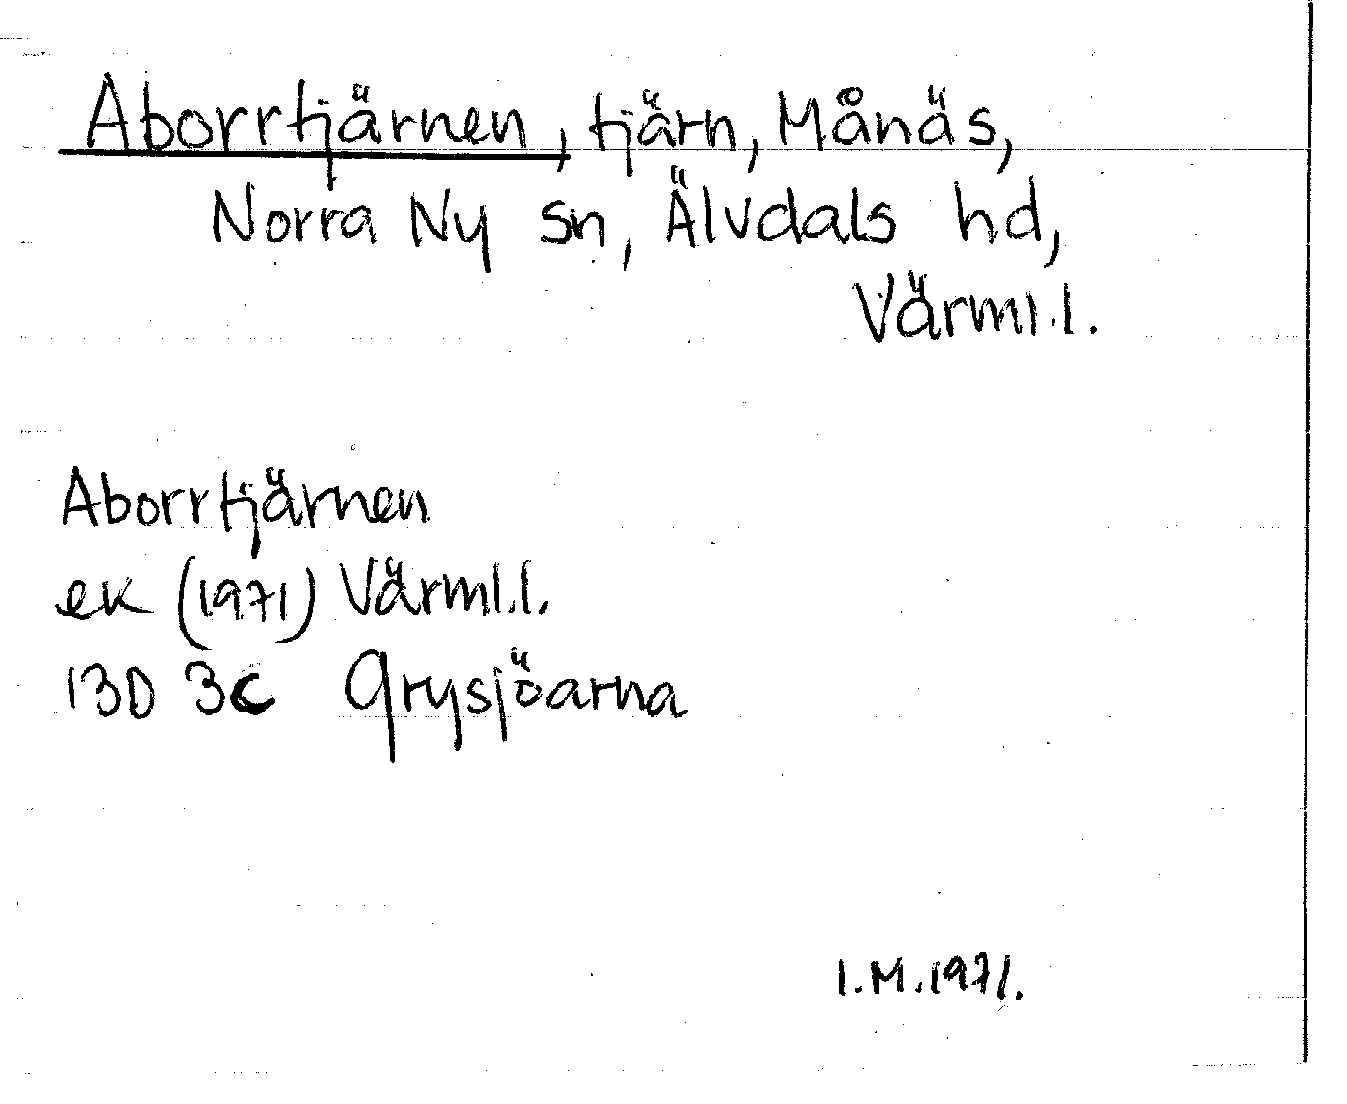 Aborrtjärnen, tjärn, Månäs,
Norra Ny sn, Älvdals hd,
Värml.l.
Aborrtjärnen
ek (1971) Värml.l.
13D 3C Grysjöarna
I.M.1971.